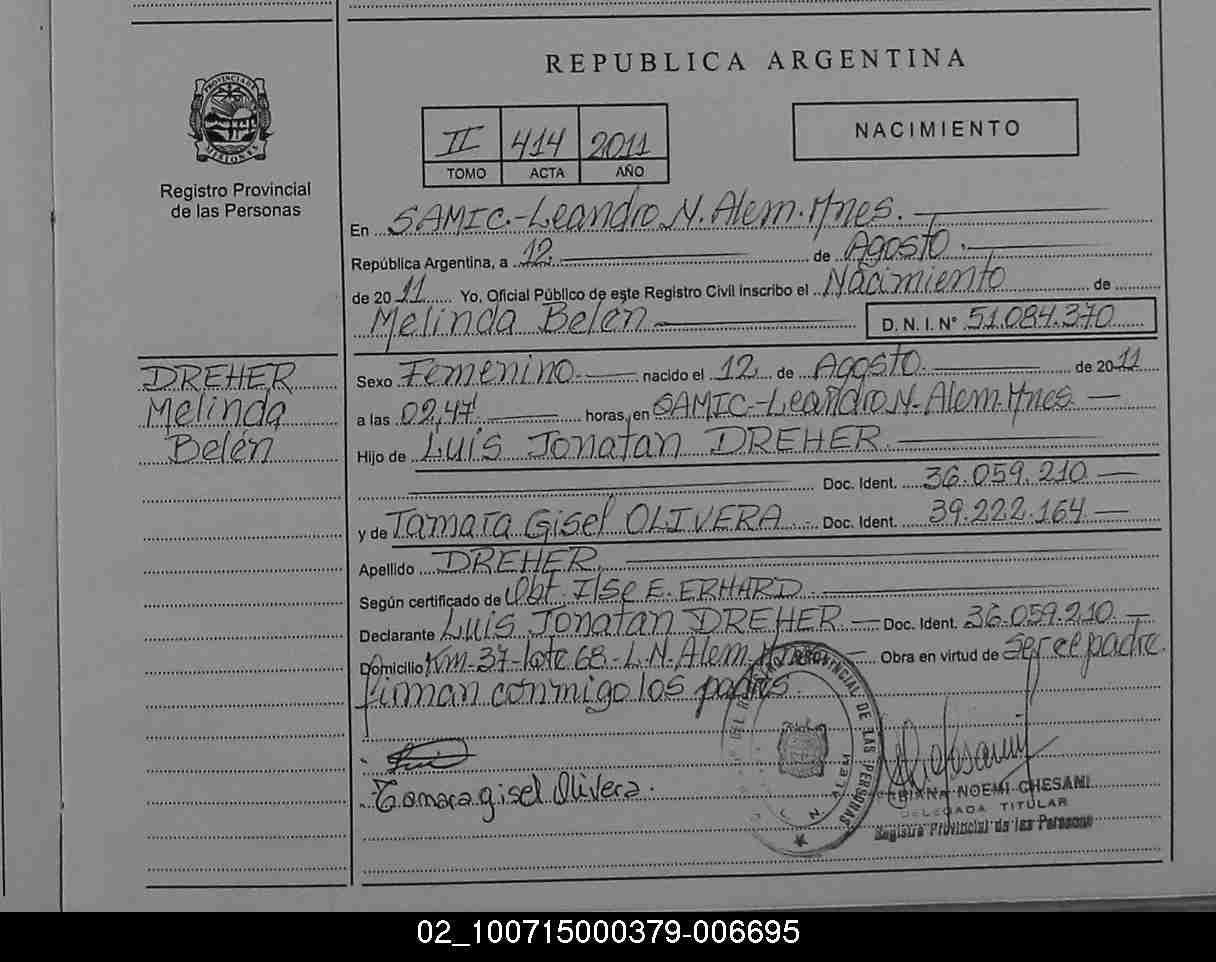 REPUBLICA ARGENTINA
PROVINCIA DE MISIONES
Registro Provincial
de las Personas
II 414 2011
TOMO ACTA AÑO
NACIMIENTO
En SAMIC.-Leandro N. Alem. Mnes.
República Argentina, a 12 de Agosto.
de 2011 Yo, Oficial Público de este Registro Civil inscribo el Nacimiento de
Melinda Belén D. N. I. N° 51.084.370
DREHER
Melinda
Belén
Sexo Femenino. nacido el 12 de Agosto. de 2011
a las 02,47 horas, en SAMIC-Leandro N. Alem. Mnes.
Hijo de Luis Jonatan DREHER.
Doc. Ident. 36.059.210
y de Tamara Gisel OLIVERA Doc. Ident. 39.222.164
Apellido DREHER.
Según certificado de Obt. Ilse E. ERHARD
Declarante Luis Jonatan DREHER. Doc. Ident. 36.059.210
Domicilio Km-37-lote 68-L.N.Alem. Obra en virtud de ser el padre.
firman conmigo los padres.
Tamara gisel Olivera.
DEL REGISTRO PROVINCIAL DE LAS PERSONAS
L. N. ALEM
FABIANA NOEMI CHESANI
DELEGADA TITULAR
Registro Provincial de las Personas
02_100715000379-006695